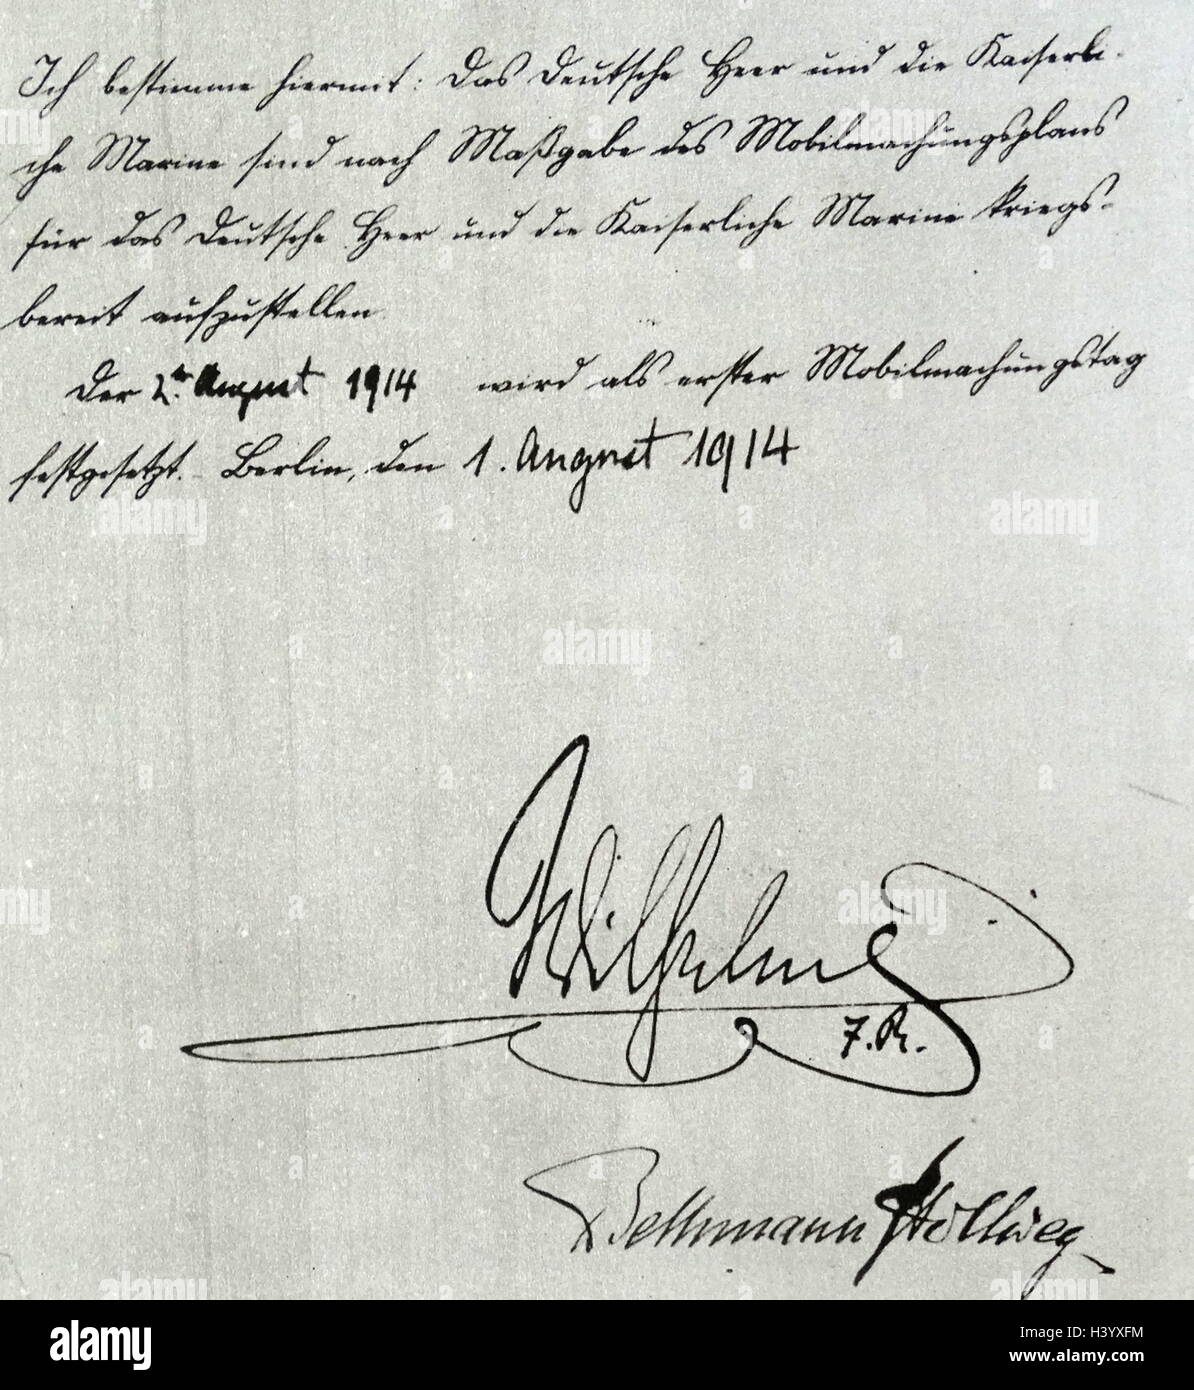 Ich bestimme hiermit: Das Deutsche Heer und die Kaiserli-
che Marine sind nach Maßgabe des Mobilmachungsplans
für das Deutsche Heer und die Kaiserliche Marine kriegs-
bereit aufzustellen.
Der 2te August 1914 wird als erster Mobilmachungstag
festgesetzt. Berlin, den 1. August 1914
Wilhelm
I.R.
Bethmann Hollweg
alamy
Image ID: H3YXFM
www.alamy.com